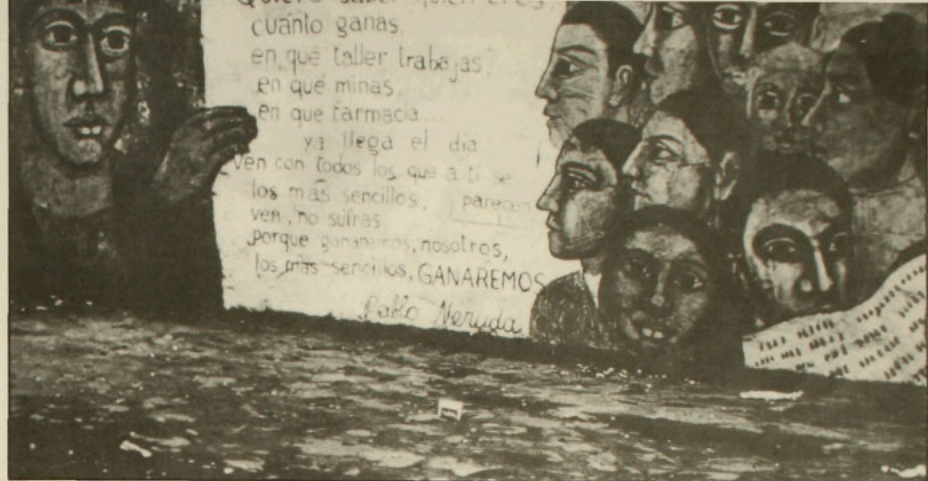 Quiero saber quién eres,
cuánto ganas,
en qué taller trabajas,
en qué minas,
en que farmacia...
ya llega el día
ven con todos los que a ti se
los más sencillos, parecen
ven, no sufras
porque ganaremos, nosotros,
los más sencillos, GANAREMOS
Pablo Neruda